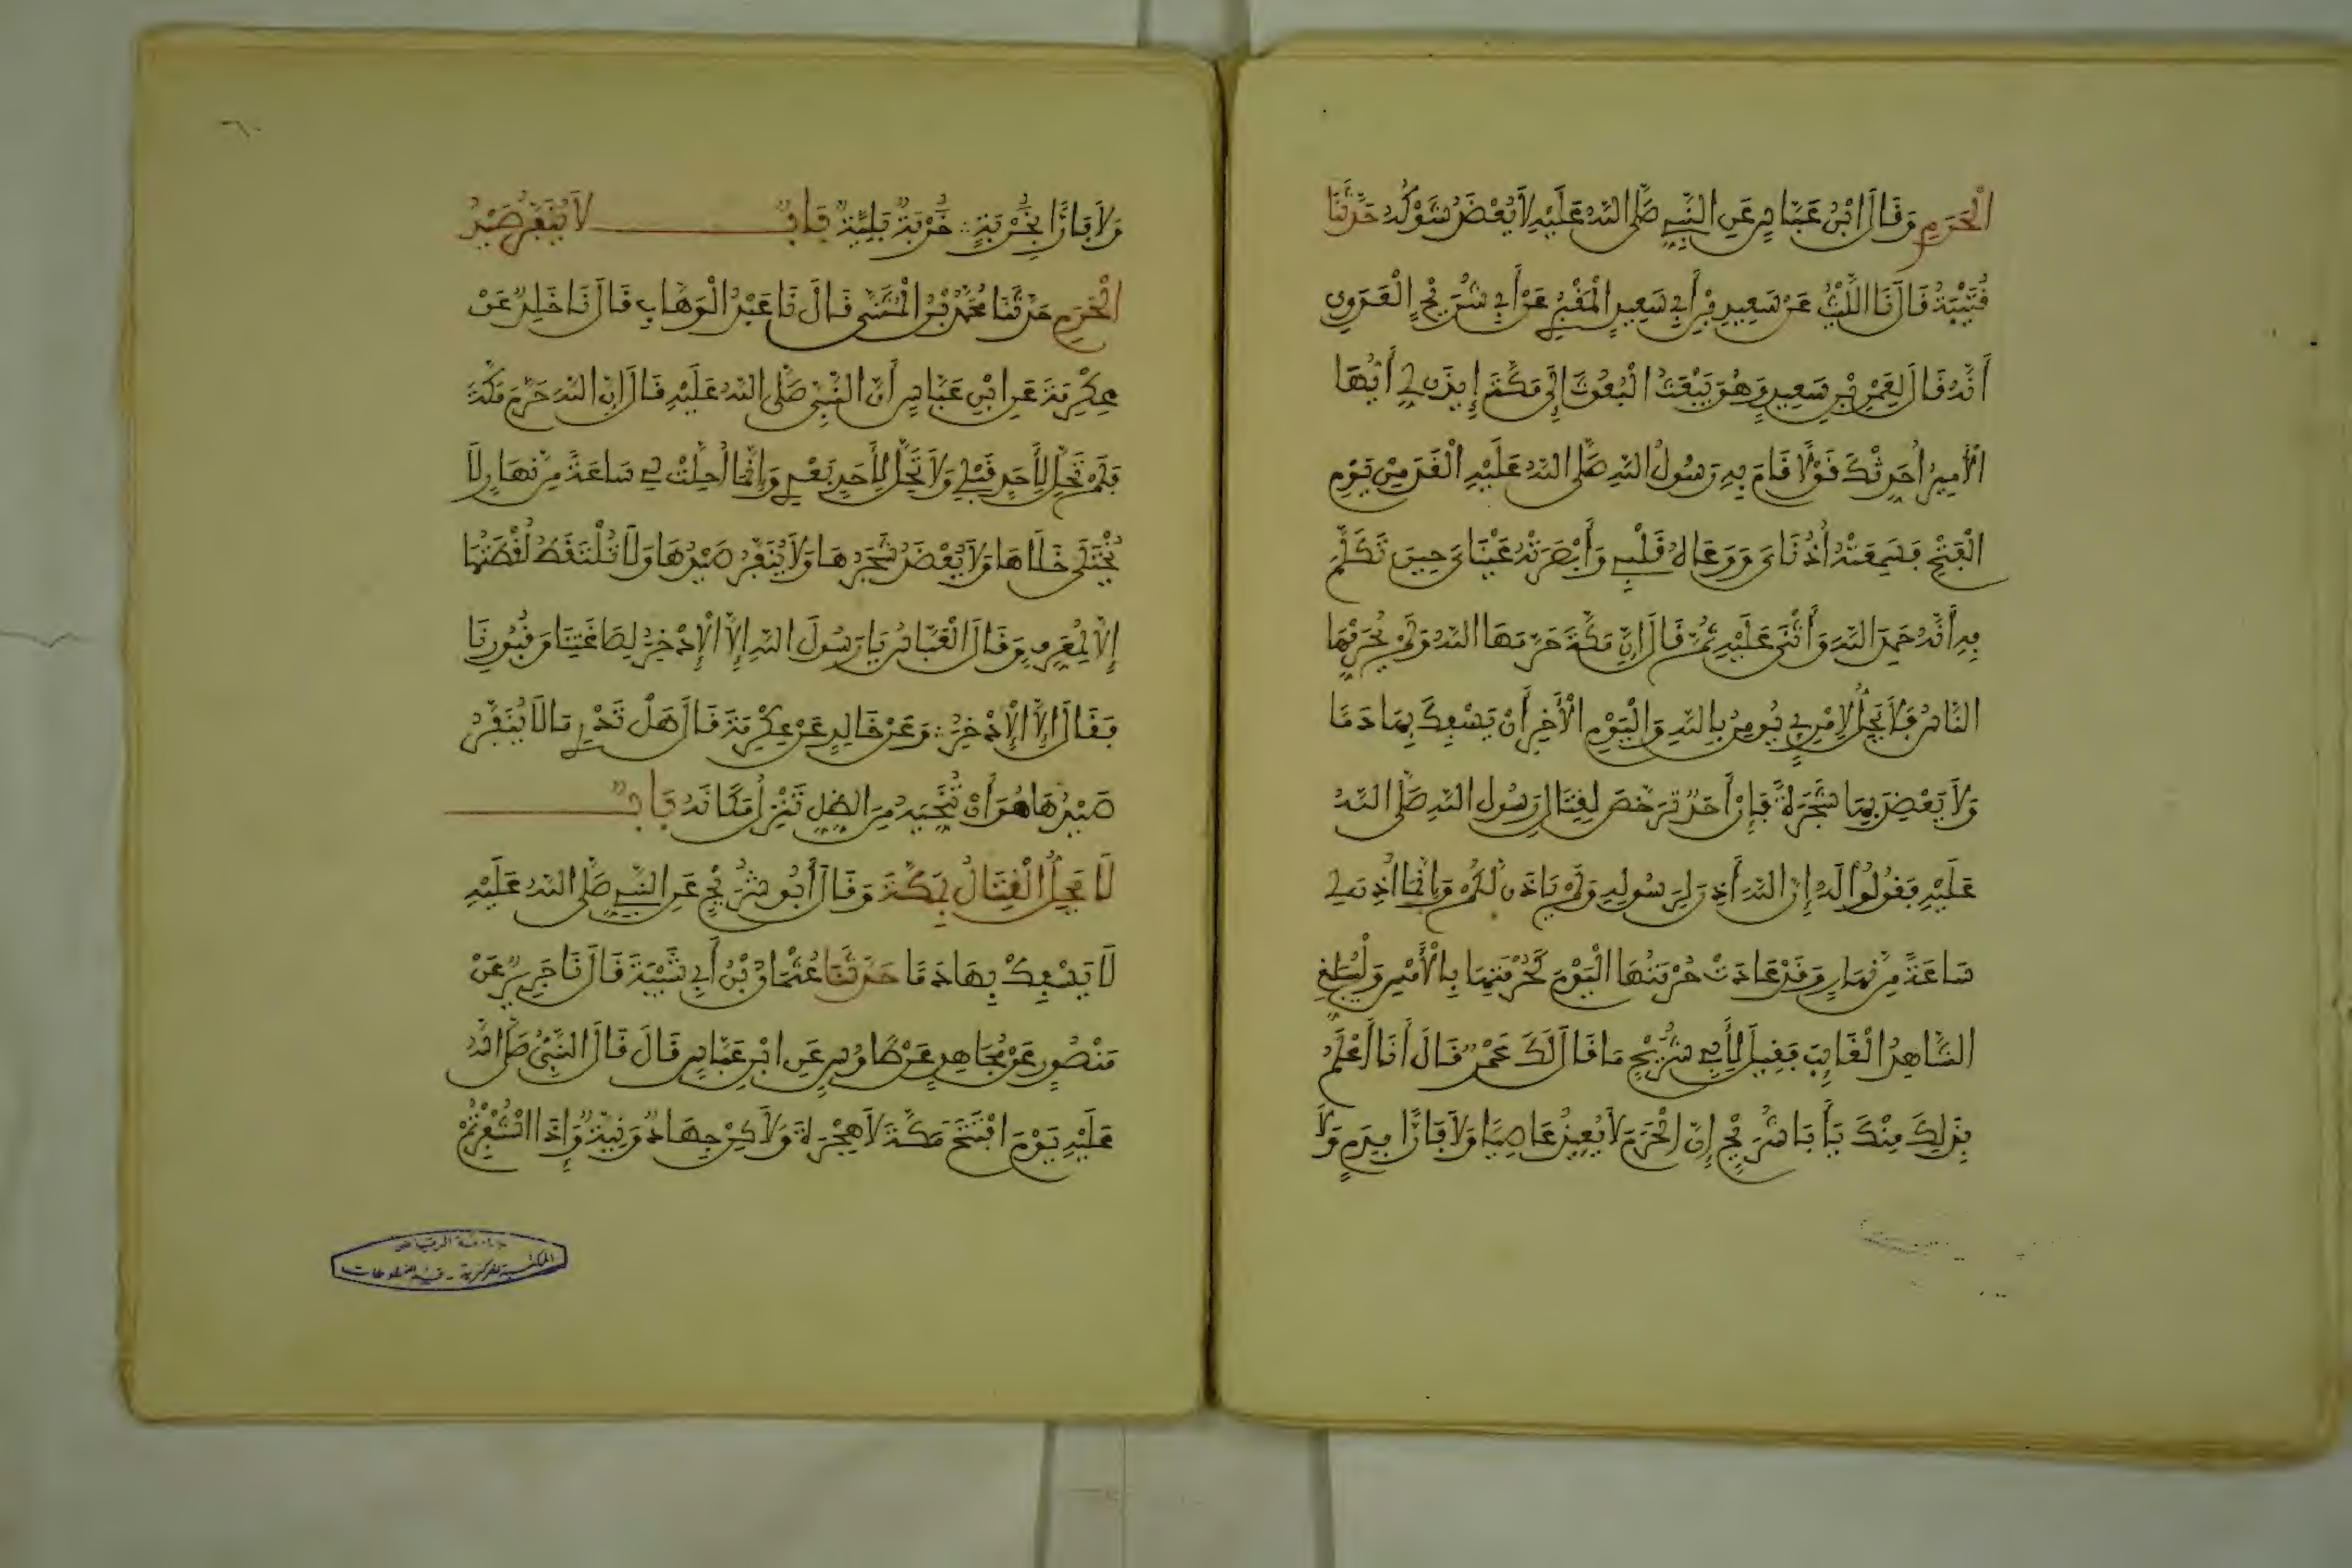 الْحَرَمِ وَقَالَ ابْنُ عَبَّاسٍ عَنِ النَّبِيِّ صَلَّى اللَّهُ عَلَيْهِ لَا يُعْضَدُ شَوْكُهُ حَدَّثَنَا
قُتَيْبَةُ قَالَ نَا اللَّيْثُ عَنْ سَعِيدِ بْنِ أَبِي سَعِيدٍ الْمَقْبُرِيِّ عَنْ أَبِي شُرَيْحٍ الْعَدَوِي
أَنَّهُ قَالَ لِعَمْرِو بْنِ سَعِيدٍ وَهُوَ يَبْعَثُ الْبُعُوثَ إِلَى مَكَّةَ إِيذَن لِي أَيُّهَا
الْأَمِيرُ أُحَدِّثْكَ قَوْلًا قَامَ بِهِ رَسُولُ اللَّهِ صَلَّى اللَّهُ عَلَيْهِ الْغَدَ مِنْ يَوْمِ
الْفَتْحِ فَسَمِعَتْهُ أُذُنَايَ وَوَعَاهُ قَلْبِي وَأَبْصَرَتْهُ عَيْنَايَ حِينَ تَكَلَّمَ
بِهِ أَنَّهُ حَمِدَ اللَّهَ وَأَثْنَى عَلَيْهِ ثُمَّ قَالَ إِنَّ مَكَّةَ حَرَّمَهَا اللَّهُ وَلَمْ يُحَرِّمْهَا
النَّاسُ فَلَا يَحِلُّ لِامْرِئٍ يُومِنُ بِاللَّهِ وَالْيَوْمِ الْأَخِرِ أَنْ يَسْفِكَ بِهَا دَمًا
وَلَا يَعْضِدَ بِهَا شَجَرَةً فَإِنْ أَحَدٌ تَرَخَّصَ لِقِتَالِ رَسُولِ اللَّهِ صَلَّى اللَّهُ
عَلَيْهِ فَقُولُوا لَهُ إِنَّ اللَّهَ أَذِنَ لِرَسُولِهِ وَلَمْ يَاذَن لَكُمْ وَإِنَّمَا أُذِنَ لِي
سَاعَةً مِنْ نَهَارٍ وَقَدْ عَادَتْ حُرْمَتُهَا الْيَوْمَ كَحُرْمَتِهَا بِالْأَمْسِ وَلْيُبَلِّغِ
الشَّاهِدُ الْغَائِبَ فَقِيلَ لِأَبِي شُرَيْحٍ مَا قَالَ لَكَ عَمْرٌو قَالَ أَنَا أَعْلَمُ
بِذَلِكَ مِنْكَ يَأَبَا شُرَيْحٍ إِنَّ الْحَرَمَ لَا يُعِيذُ عَاصِيًا وَلَا فَارًّا بِدَمٍ وَلَا
وَلَا فَارًّا بِخُرْبَةٍ خُرْبَةٌ بَلِيَّةٌ بَابٌ لَا يُنَفَّرُ صَيْدُ
الْحَرَمِ حَدَّثَنَا مُحَمَّدُ بْنُ الْمُثَنَّى قَالَ نَا عَبْدُ الْوَهَّابِ قَالَ نَا خَالِدٌ عَنْ
عِكْرِمَةَ عَنِ ابْنِ عَبَّاسٍ أَنَّ النَّبِيَّ صَلَّى اللَّهُ عَلَيْهِ قَالَ إِنَّ اللَّهَ حَرَّمَ مَكَّةَ
فَلَمْ تَحِلَّ لِأَحَدٍ قَبْلِي وَلَا تَحِلُّ لِأَحَدٍ بَعْدِي وَإِنَّمَا أُحِلَّتْ لِي سَاعَةً مِنْ نَهَارٍ لَا
يُخْتَلَى خَلَاهَا وَلَا يُعْضَدُ شَجَرُهَا وَلَا يُنَفَّرُ صَيْدُهَا وَلَا تُلْتَقَطُ لُقْطَتُهَا
إِلَّا لِمُعَرِّفٍ وَقَالَ الْعَبَّاسُ يَا رَسُولَ اللَّهِ إِلَّا الْإِذْخِرَ لِصَاغَتِنَا وَقُبُورِنَا
فَقَالَ إِلَّا الْإِذْخِرَ وَعَنْ خَالِدٍ عَنْ عِكْرِمَةَ قَالَ هَلْ تَدْرِي مَا لَا يُنَفَّرُ
صَيْدُهَا هُوَ أَنْ تُنَحِّيَهُ مِنَ الظِّلِّ تَنْزِلُ مَكَانَهُ بَابٌ
لَا يَحِلُّ الْقِتَالُ بِمَكَّةَ وَقَالَ أَبُو شُرَيْحٍ عَنِ النَّبِيِّ صَلَّى اللَّهُ عَلَيْهِ
لَا يَسْفِكْ بِهَا دَمًا حَدَّثَنَا عُثْمَانُ بْنُ أَبِي شَيْبَةَ قَالَ نَا جَرِيرٌ عَنْ
مَنْصُورٍ عَنْ مُجَاهِدٍ عَنْ طَاوُسٍ عَنِ ابْنِ عَبَّاسٍ قَالَ قَالَ النَّبِيُّ صَلَّى اللَّهُ
عَلَيْهِ يَوْمَ افْتَتَحَ مَكَّةَ لَا هِجْرَةَ وَلَاكِنْ جِهَادٌ وَنِيَّةٌ وَإِذَا اسْتُنْفِرْتُمْ
جامعة الرياض
المكتبة المركزية - قسم المخطوطات